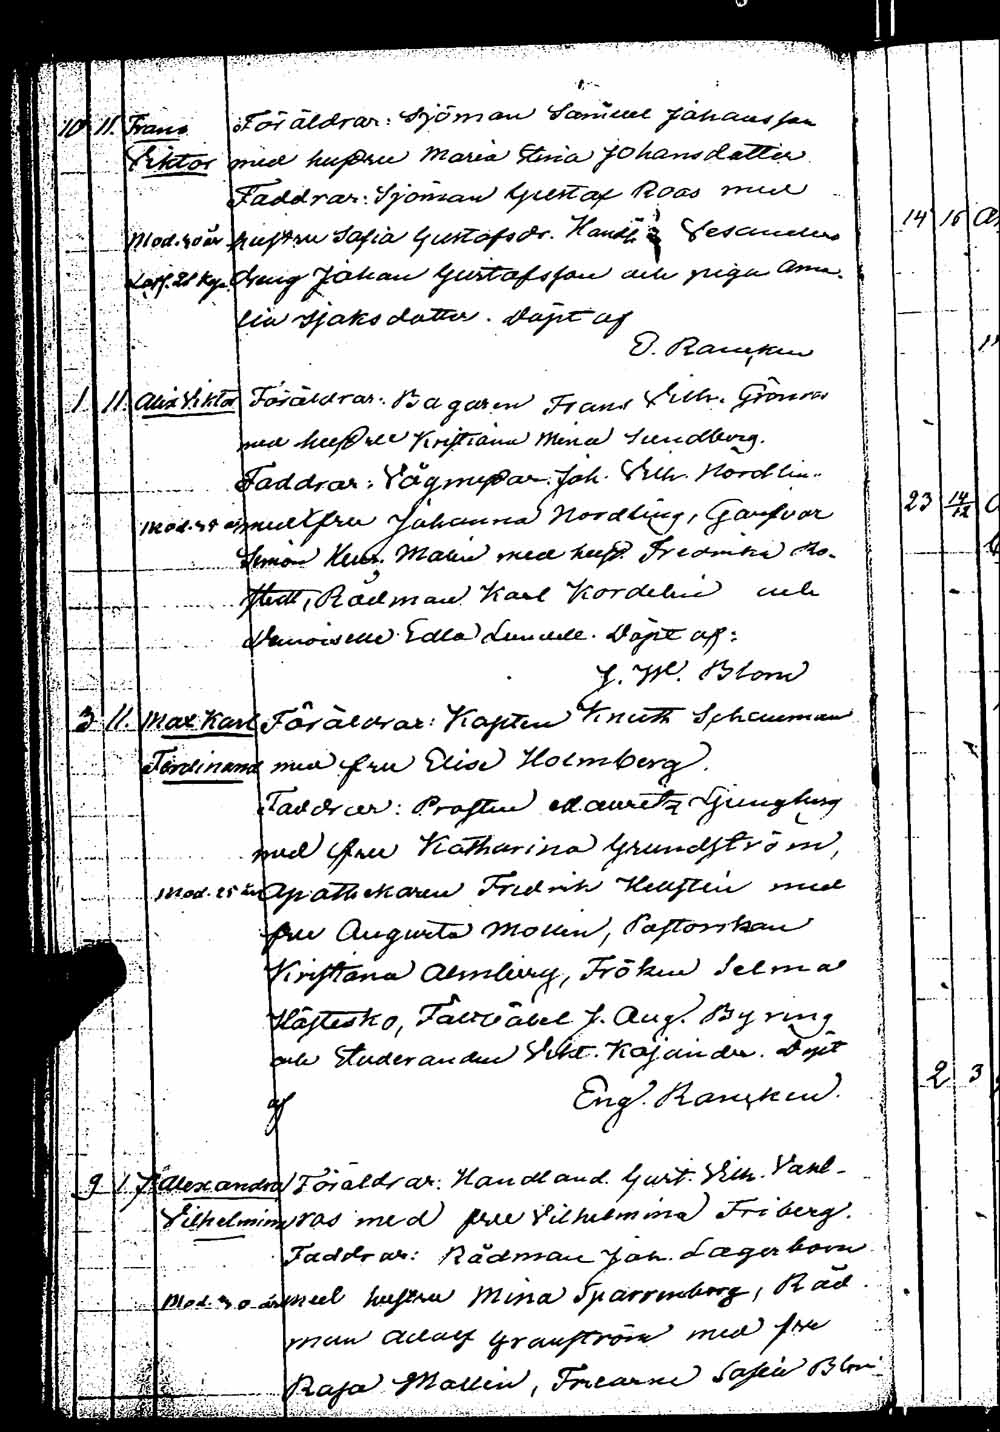 10 11. Frans Föräldrar: Sjöman Samuel Johansson
Viktor med hustru Maria Stina Johansdotter
Faddrar: Sjöman Gustaf Roos med
Mod. 30 år hustru Sofia Gustafsdr. Handl. Vesanders
dreng Johan Gustafsson och piga Ama-
lia Isaksdotter. Döpt af
E. Rancken
1 11. Alex Viktor Föräldrar: Bagaren Frans Vilh. Grönros
med hustru Kristiana Mina Sundberg.
Faddrar: Vågmästar. Joh. Vilh. Nordlin..
med fru Johanna Nordling, Garfvar
Simon Henr. Malin med hust. Fredrika Ro-
stedt, Rådman Karl Kordelin och
Demoiselle Edla Lundell. Döpt af:
J. W. Blom
3 11. Max Karl Föräldrar: Kapten Knuth Schauman
Ferdinand med fru Elise Holmberg.
Faddrar: Prosten Mauritz Ljungberg
med fru Katharina Grundström,
Mod. 25 år Apothekaren Fredrik Hellsten med
fru Augusta Molin, Pastorskan
Kristiana Almberg, Fröken Selma
Högtesko, Fältväbel J. Aug. Byring
och Studeranden Vikt. Kajander. Döpt
af Eng. Rancken.
9 1. Alexandra Föräldrar: Handland. Gust. Vilh. Vahl-
Vilhelmina ros med fru Vilhelmina Friberg.
Faddrar: Rådman Joh. Lagerbom
Mod. 30 år med hustru Mina Sparrenborg, Råd
man Adolf Granström med fru
Rosa Malin, Fruarne Sofia Blom
14 16
23 14/12
2 3